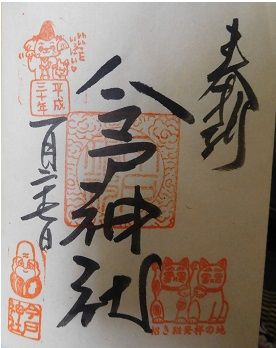 奉拝
今戸神社
平成
三十年
一月二十七日
招き猫発祥の地